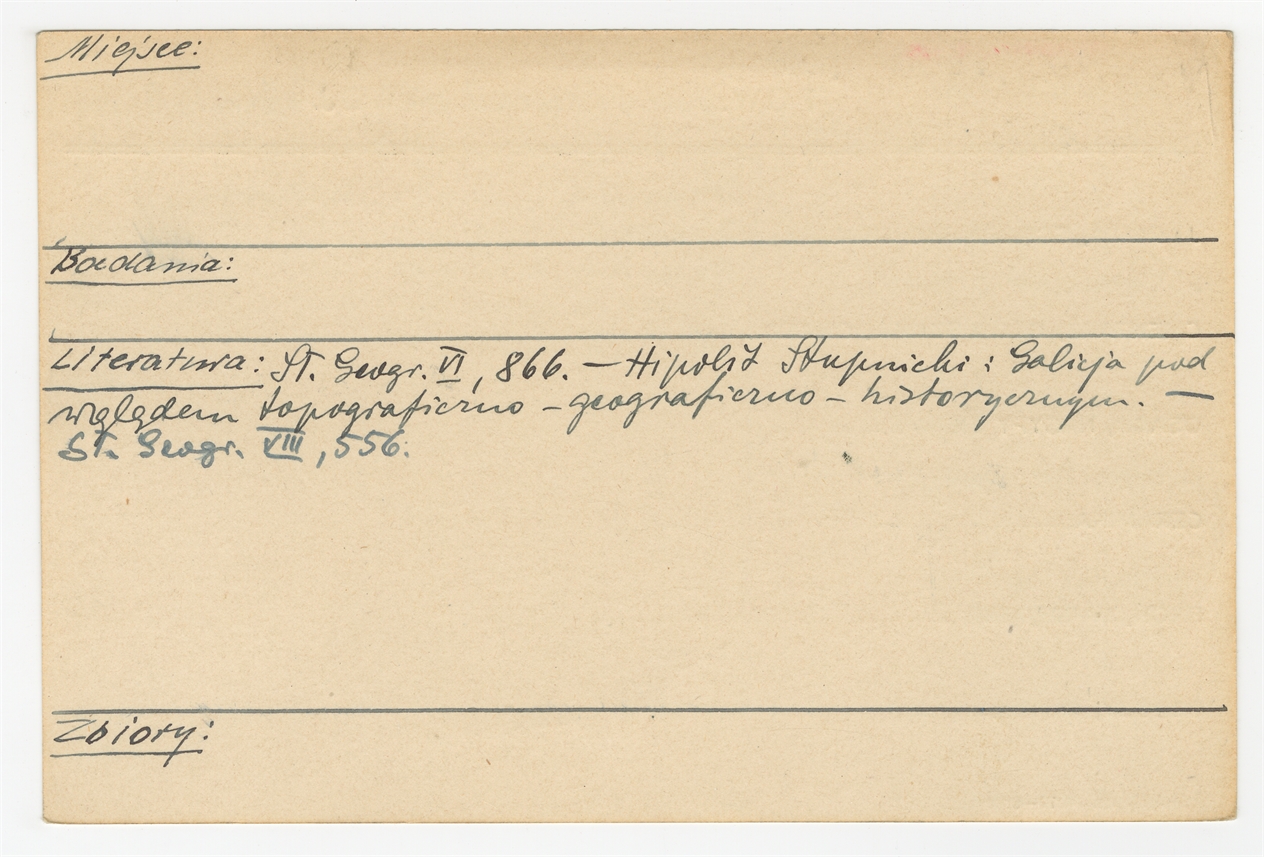 Miejsce:
Badania:
Literatura: Sł. Geogr. VI, 866. — Hipolit Stupnicki: Galicja pod
względem topograficzno – geograficzno – historycznym. —
Sł. Geogr. XIII, 556.
Zbiory: